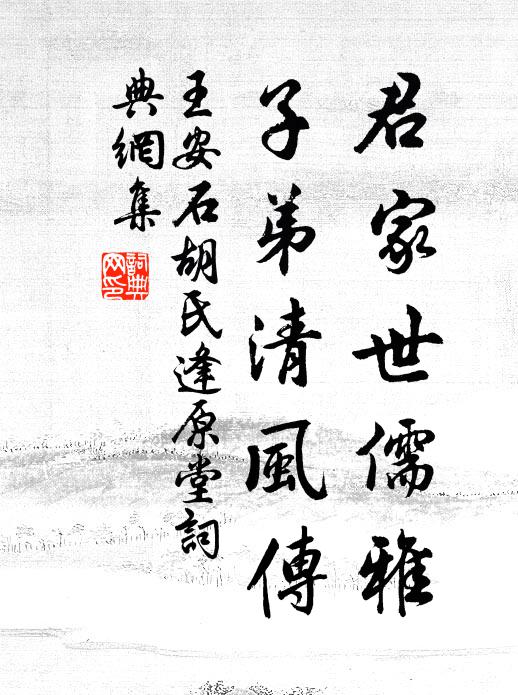 君家世儒雅
子弟清風傳
王安石胡氏逢原堂詞
典網集
詞典網印